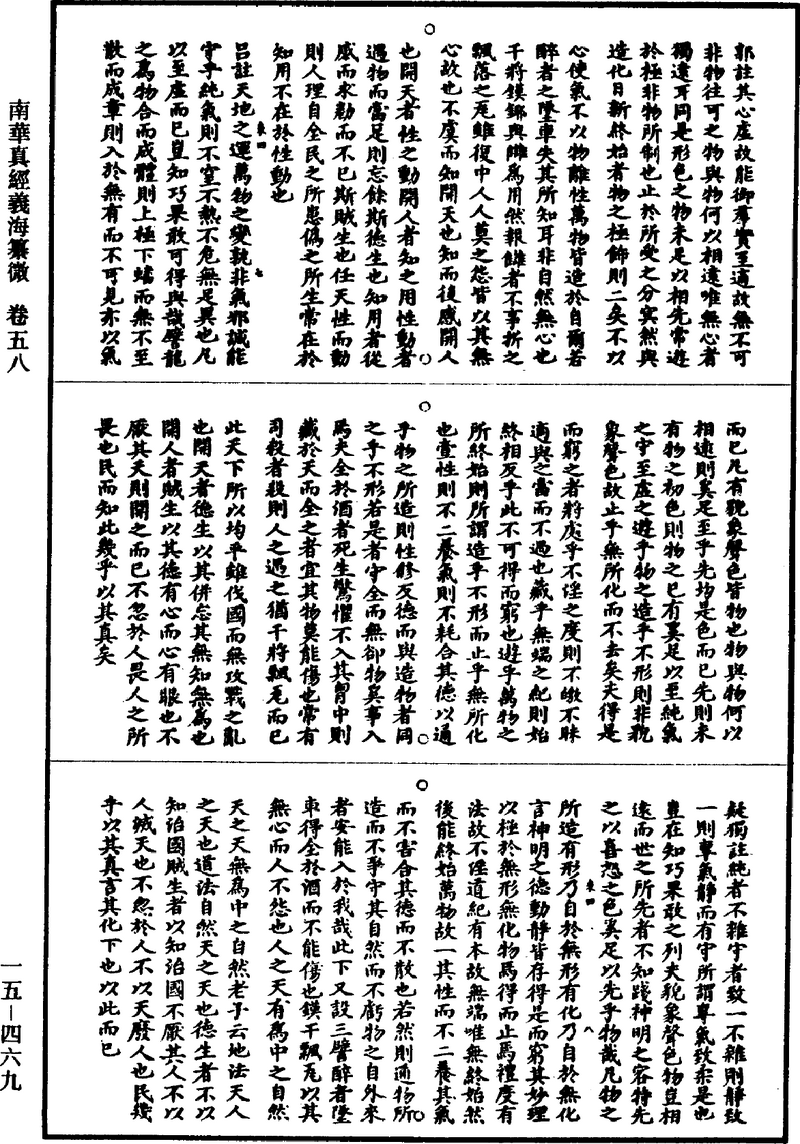 南華真經義海纂微　卷五八
一五—四六九
郭註其心虛故能御羣實至適故無不可
非物往可之物與物何以相遠唯無心者
獨遠耳同是形色之物未足以相先常遊
於極非物所制也止於所受之分冥然與
造化日新終始者物之極飾則二矣不以
心使氣不以物離性萬物皆造於自爾若
醉者之墜車失其所知耳非自然無心也
干將鏌鋣與讎為用然報讎者不事折之
飄落之瓦雖復中人人莫之怨皆以其無
心故也不虞而知開天也知而後感開人
也開天者性之動開人者知之用性動者
遇物而當足則忘餘斯德生也知用者從
感而求勸而不已斯賊生也任天性而動
則人理自全民之所患偽之所生常在於
知用不在於性動也
呂註天地之運萬物之變孰非氣邪誠能
守乎純氣則不窒不熱不危無足異也凡
以至虛而已豈知巧果敢可得與哉譬龍
之為物合而成體則上極下蟠而無不至
散而成章則入於無有而不可見亦以氣
而已凡有貌象聲色皆物也物與物何以
相遠則奚足至乎先均是色而已先則未
有物之初色則物之已有奚足以至純氣
之守至虛之遊乎物之造乎不形則非貌
象聲色故止乎無所化而不去矣夫得是
而窮之者將處乎不淫之度則不皦不昧
適與之當而不過也藏乎無端之紀則始
終相反乎此不可得而窮也遊乎萬物之
所終始則所謂造乎不形而止乎無所化
也壹性則不二養氣則不耗合其德以通
乎物之所造則性修反德而與造物者同
之乎不形若是者守全而無卻物奚事入
焉夫全於酒者死生驚懼不入其胷中則
藏於天而全之者宜其物莫能傷也常有
司殺者殺則人之遇之猶干將飄瓦而已
此天下所以均平雖伐國而無攻戰之亂
也開天者德生以其併忘其無知無為也
開人者賊生以其德有心而心有眼也不
厭其天則開之而已不忽於人畏人之所
畏也民而知此幾乎以其真矣
疑獨註純者不雜守者致一不雜則靜致
一則專氣靜而有守所謂專氣致柔是也
豈在知巧果敢之列夫貌象聲色物豈相
遠而世之所先者不知踐神明之容特先
之以喜怒之色奚足以先乎物哉凡物之
所造有形乃自於無形有化乃自於無化
言神明之德動靜皆存得是而窮其妙理
以極於無形無化物焉得而止焉禮度有
法故不淫道紀有本故無端唯無終始然
後能終始萬物故一其性而不二養其氣
而不害合其德而不散也若然則通物所
造而不爭守其自然而不虧物之自外來
者安能入於我哉此下又設三譬醉者墜
車得全於酒而不能傷也鏌干飄瓦以其
無心而人不怨也人之天有為中之自然
天之天無為中之自然老子云地法天人
之天也道法自然天之天也德生者不以
知治國賊生者以知治國不厭其人不以
人滅天也不忽於人不以天廢人也民幾
乎以其真言其化下也以此而已